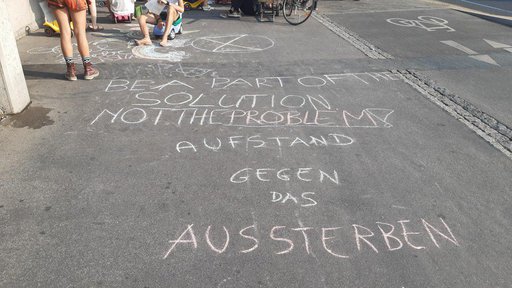 BE A PART OF THE
SOLUTION.
NOT THE PROBLEM!
AUFSTAND
GEGEN
DAS
AUSSTERBEN